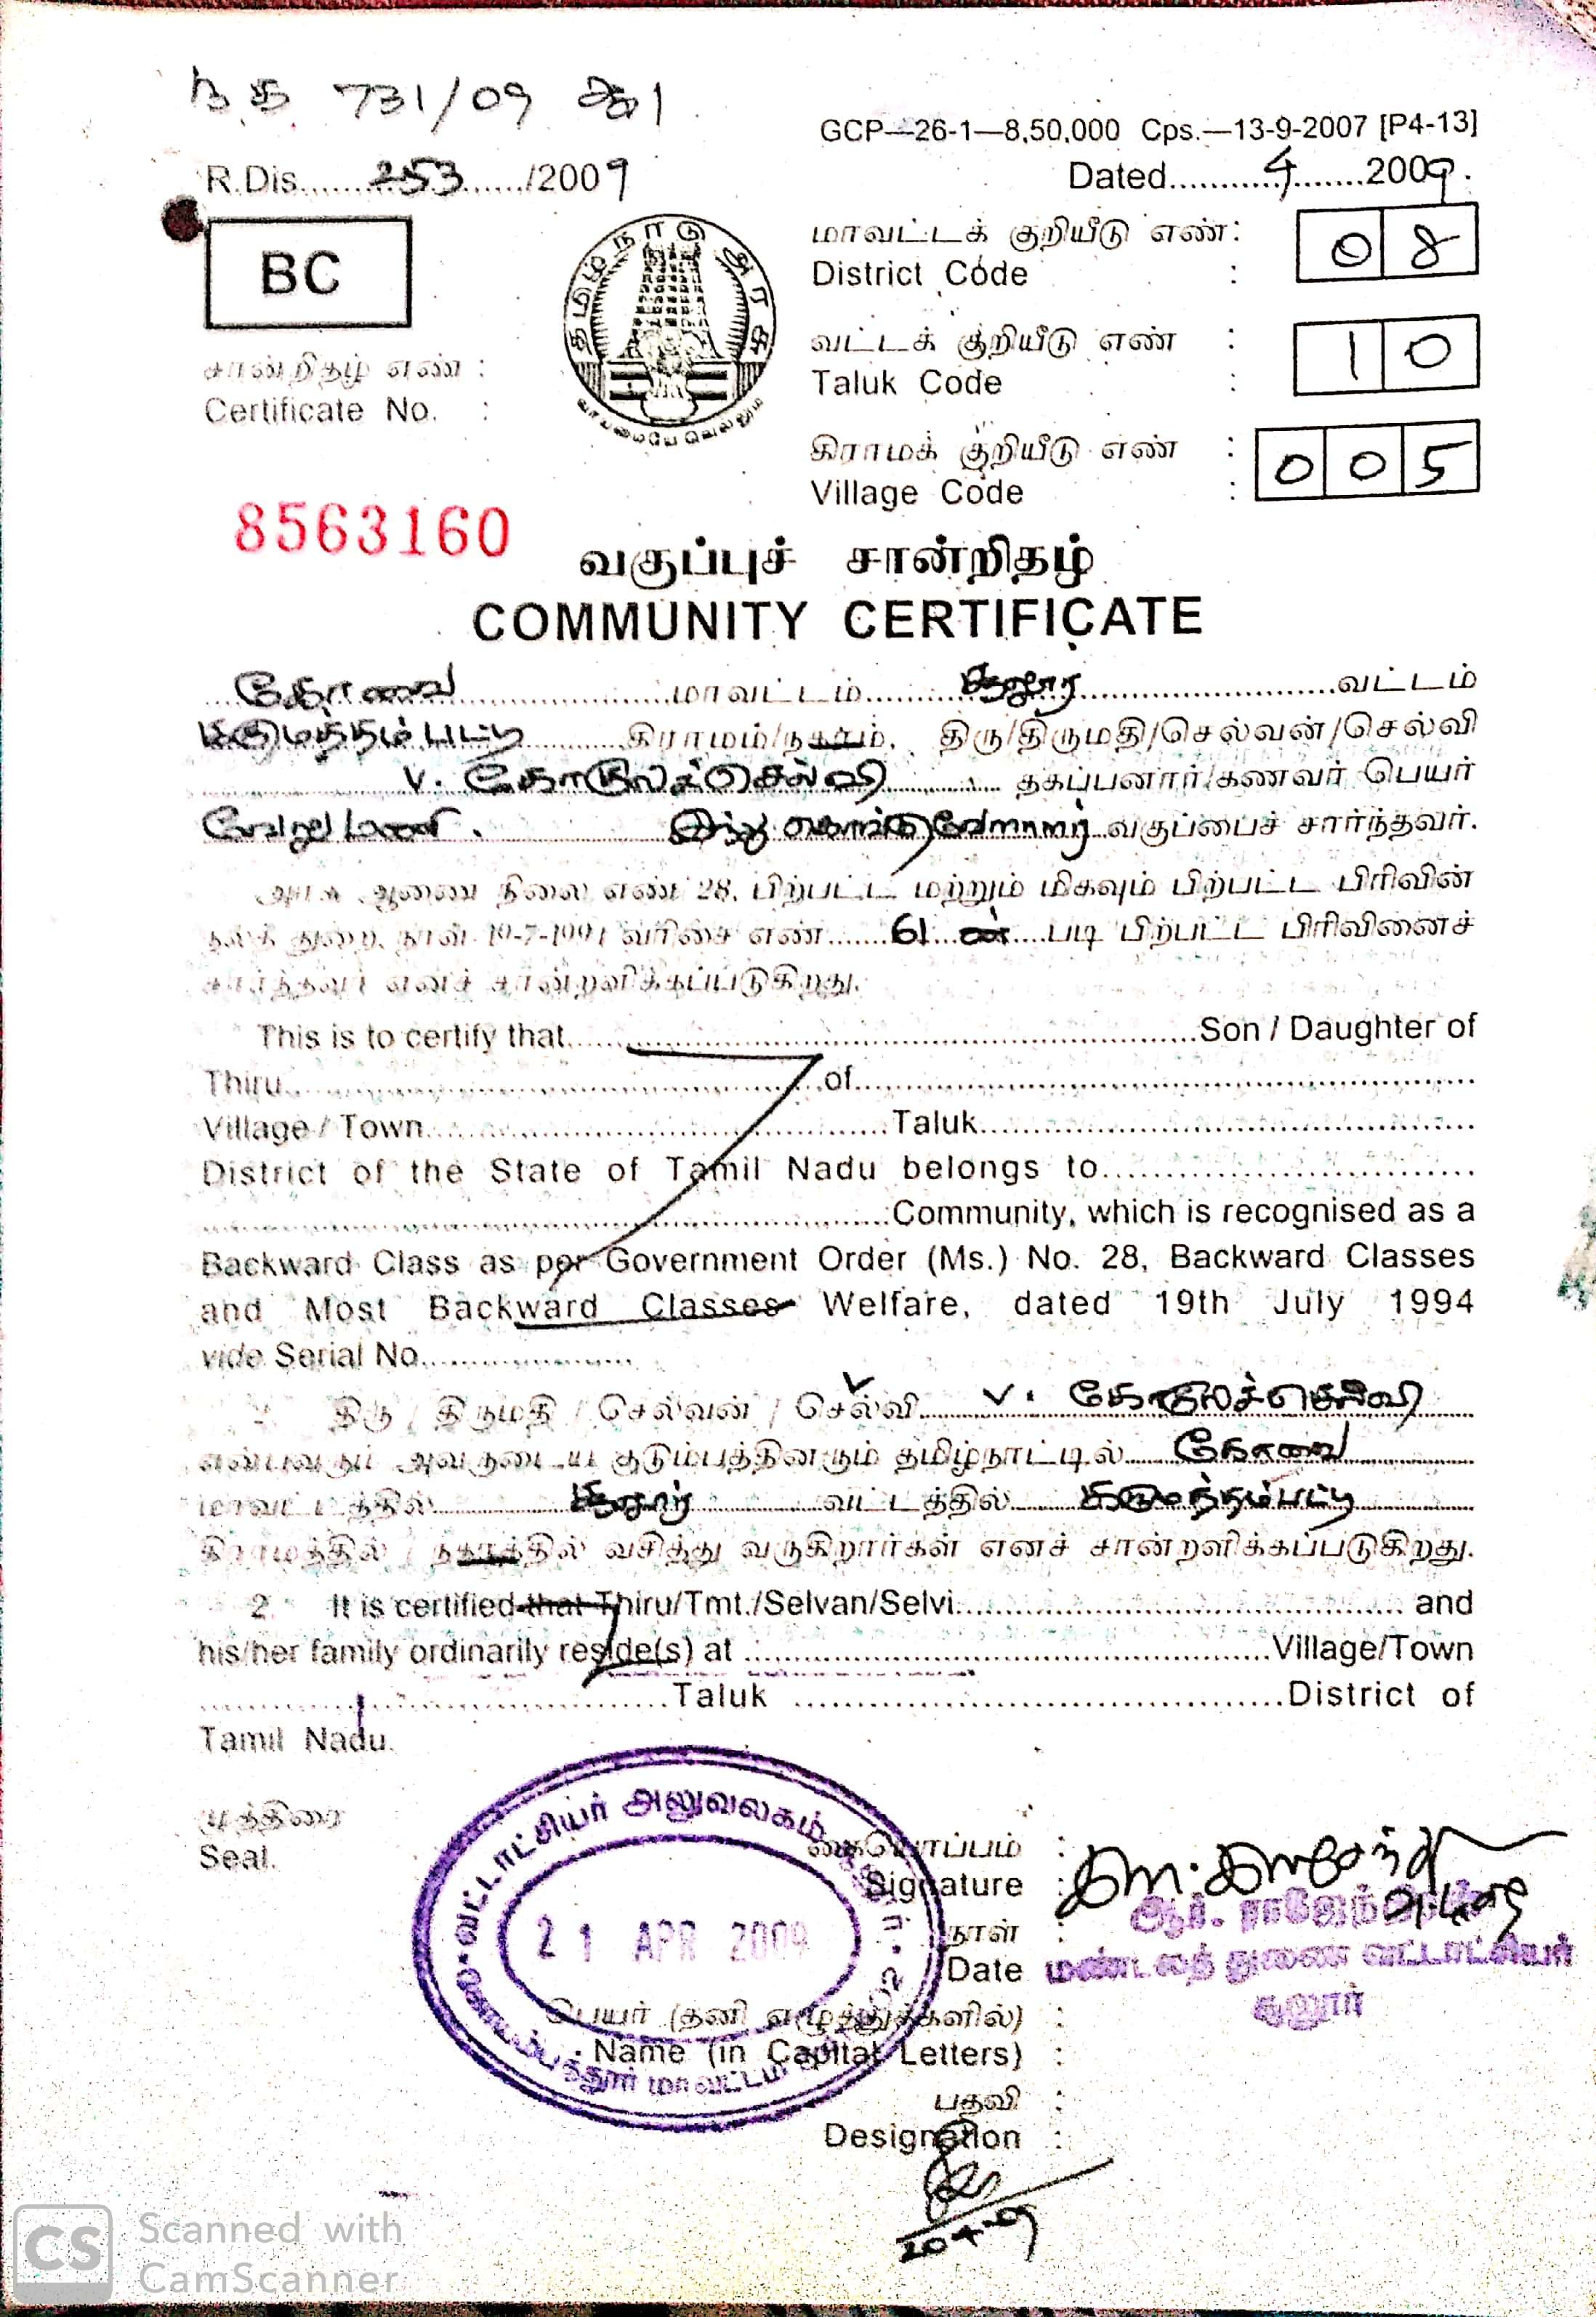 ந.க 731/09 ஆ1
GCP—26-1—8,50,000 Cps.—13-9-2007 [P4-13]
R.Dis.......253....../2009
Dated...........4.......2009.
BC
தமிழ்நாடு அரசு
வாய்மையே வெல்லும்
மாவட்டக் குறியீடு எண்: 08
District Code :
வட்டக் குறியீடு எண் : 10
Taluk Code :
கிராமக் குறியீடு எண் : 005
Village Code :
சான்றிதழ் எண் :
Certificate No. :
8563160
வகுப்புச் சான்றிதழ்
COMMUNITY CERTIFICATE
கோவை மாவட்டம் சூலூர் வட்டம்
கிராமம்/நகரம், திரு/திருமதி/செல்வன்/செல்வி
V. கோகுலச்செல்வி தகப்பனார்/கணவர் பெயர்
வேலுமணி. இந்து கொங்குவேளாளர் வகுப்பைச் சார்ந்தவர்.
அரசு ஆணை நிலை எண் 28, பிற்பட்ட மற்றும் மிகவும் பிற்பட்ட பிரிவின்
நலத் துறை, நாள் 19-7-1994 வரிசை எண்.......61 ன்....படி பிற்பட்ட பிரிவினைச்
சார்ந்தவர் எனச் சான்றளிக்கப்படுகிறது.
This is to certify that..........Son / Daughter of
Thiru..........of..........
Village / Town..........Taluk..........
District of the State of Tamil Nadu belongs to..........
..........Community, which is recognised as a
Backward Class as per Government Order (Ms.) No. 28, Backward Classes
and Most Backward Classes Welfare, dated 19th July 1994
vide Serial No..........
2. திரு / திருமதி / செல்வன் / செல்வி V. கோகுலச்செல்வி
என்பவரும் அவருடைய குடும்பத்தினரும் தமிழ்நாட்டில் கோவை
மாவட்டத்தில் சூலூர் வட்டத்தில்
கிராமத்தில் / நகரத்தில் வசித்து வருகிறார்கள் எனச் சான்றளிக்கப்படுகிறது.
2. It is certified that Thiru/Tmt./Selvan/Selvi.......... and
his/her family ordinarily reside(s) at ..........Village/Town
..........Taluk ..........District of
Tamil Nadu.
முத்திரை
Seal.
வட்டாட்சியர் அலுவலகம்
21 APR 2009
கோயம்புத்தூர் மாவட்டம்
கையொப்பம் :
Signature :
நாள் :
Date
மண்டலத் துணை வட்டாட்சியர்
சூலூர்
பெயர் (தனி எழுத்துக்களில்) :
Name (in Capital Letters) :
பதவி :
Designation :
20-4-09
CS Scanned with
CamScanner